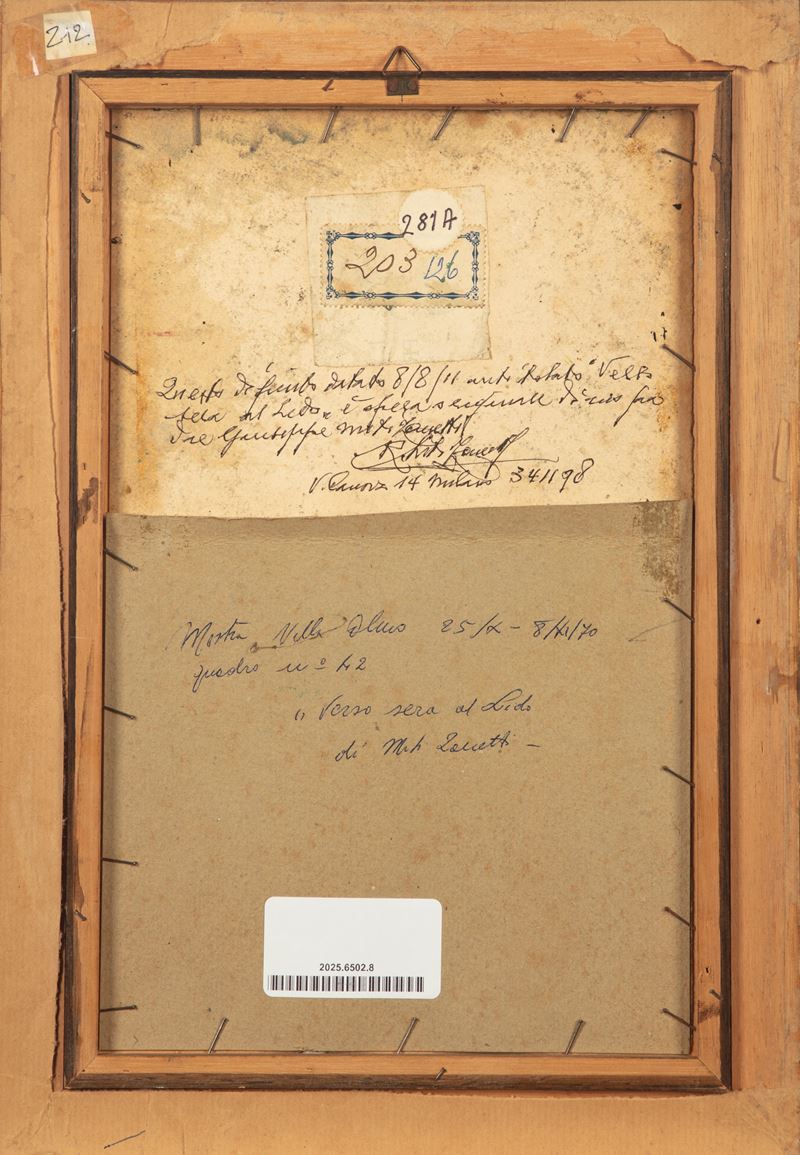 212
281A
203 126
Questo dipinto datato 8/8/11 intitolato "Verso
sera al Lido" è opera di mio pa
dre Giuseppe Miti Zanetti
Miti Zanetti
V. Canova 14 Milano 341198
Mostra Villa Olmo 25/X - 8/XI/70
quadro n° 42
" Verso sera al Lido
di Miti Zanetti -
2025.6502.8